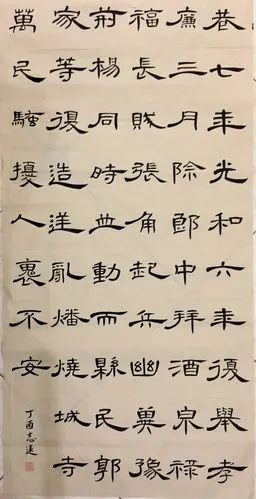 巷七年光和六年復舉孝
廉三月除郎中拜酒泉祿
福長賊張角起兵幽冀豫
荊楊同時並動而縣民郭
家等復造逆亂燔燒城寺
萬民騷擾人裹不安
丁酉志遠